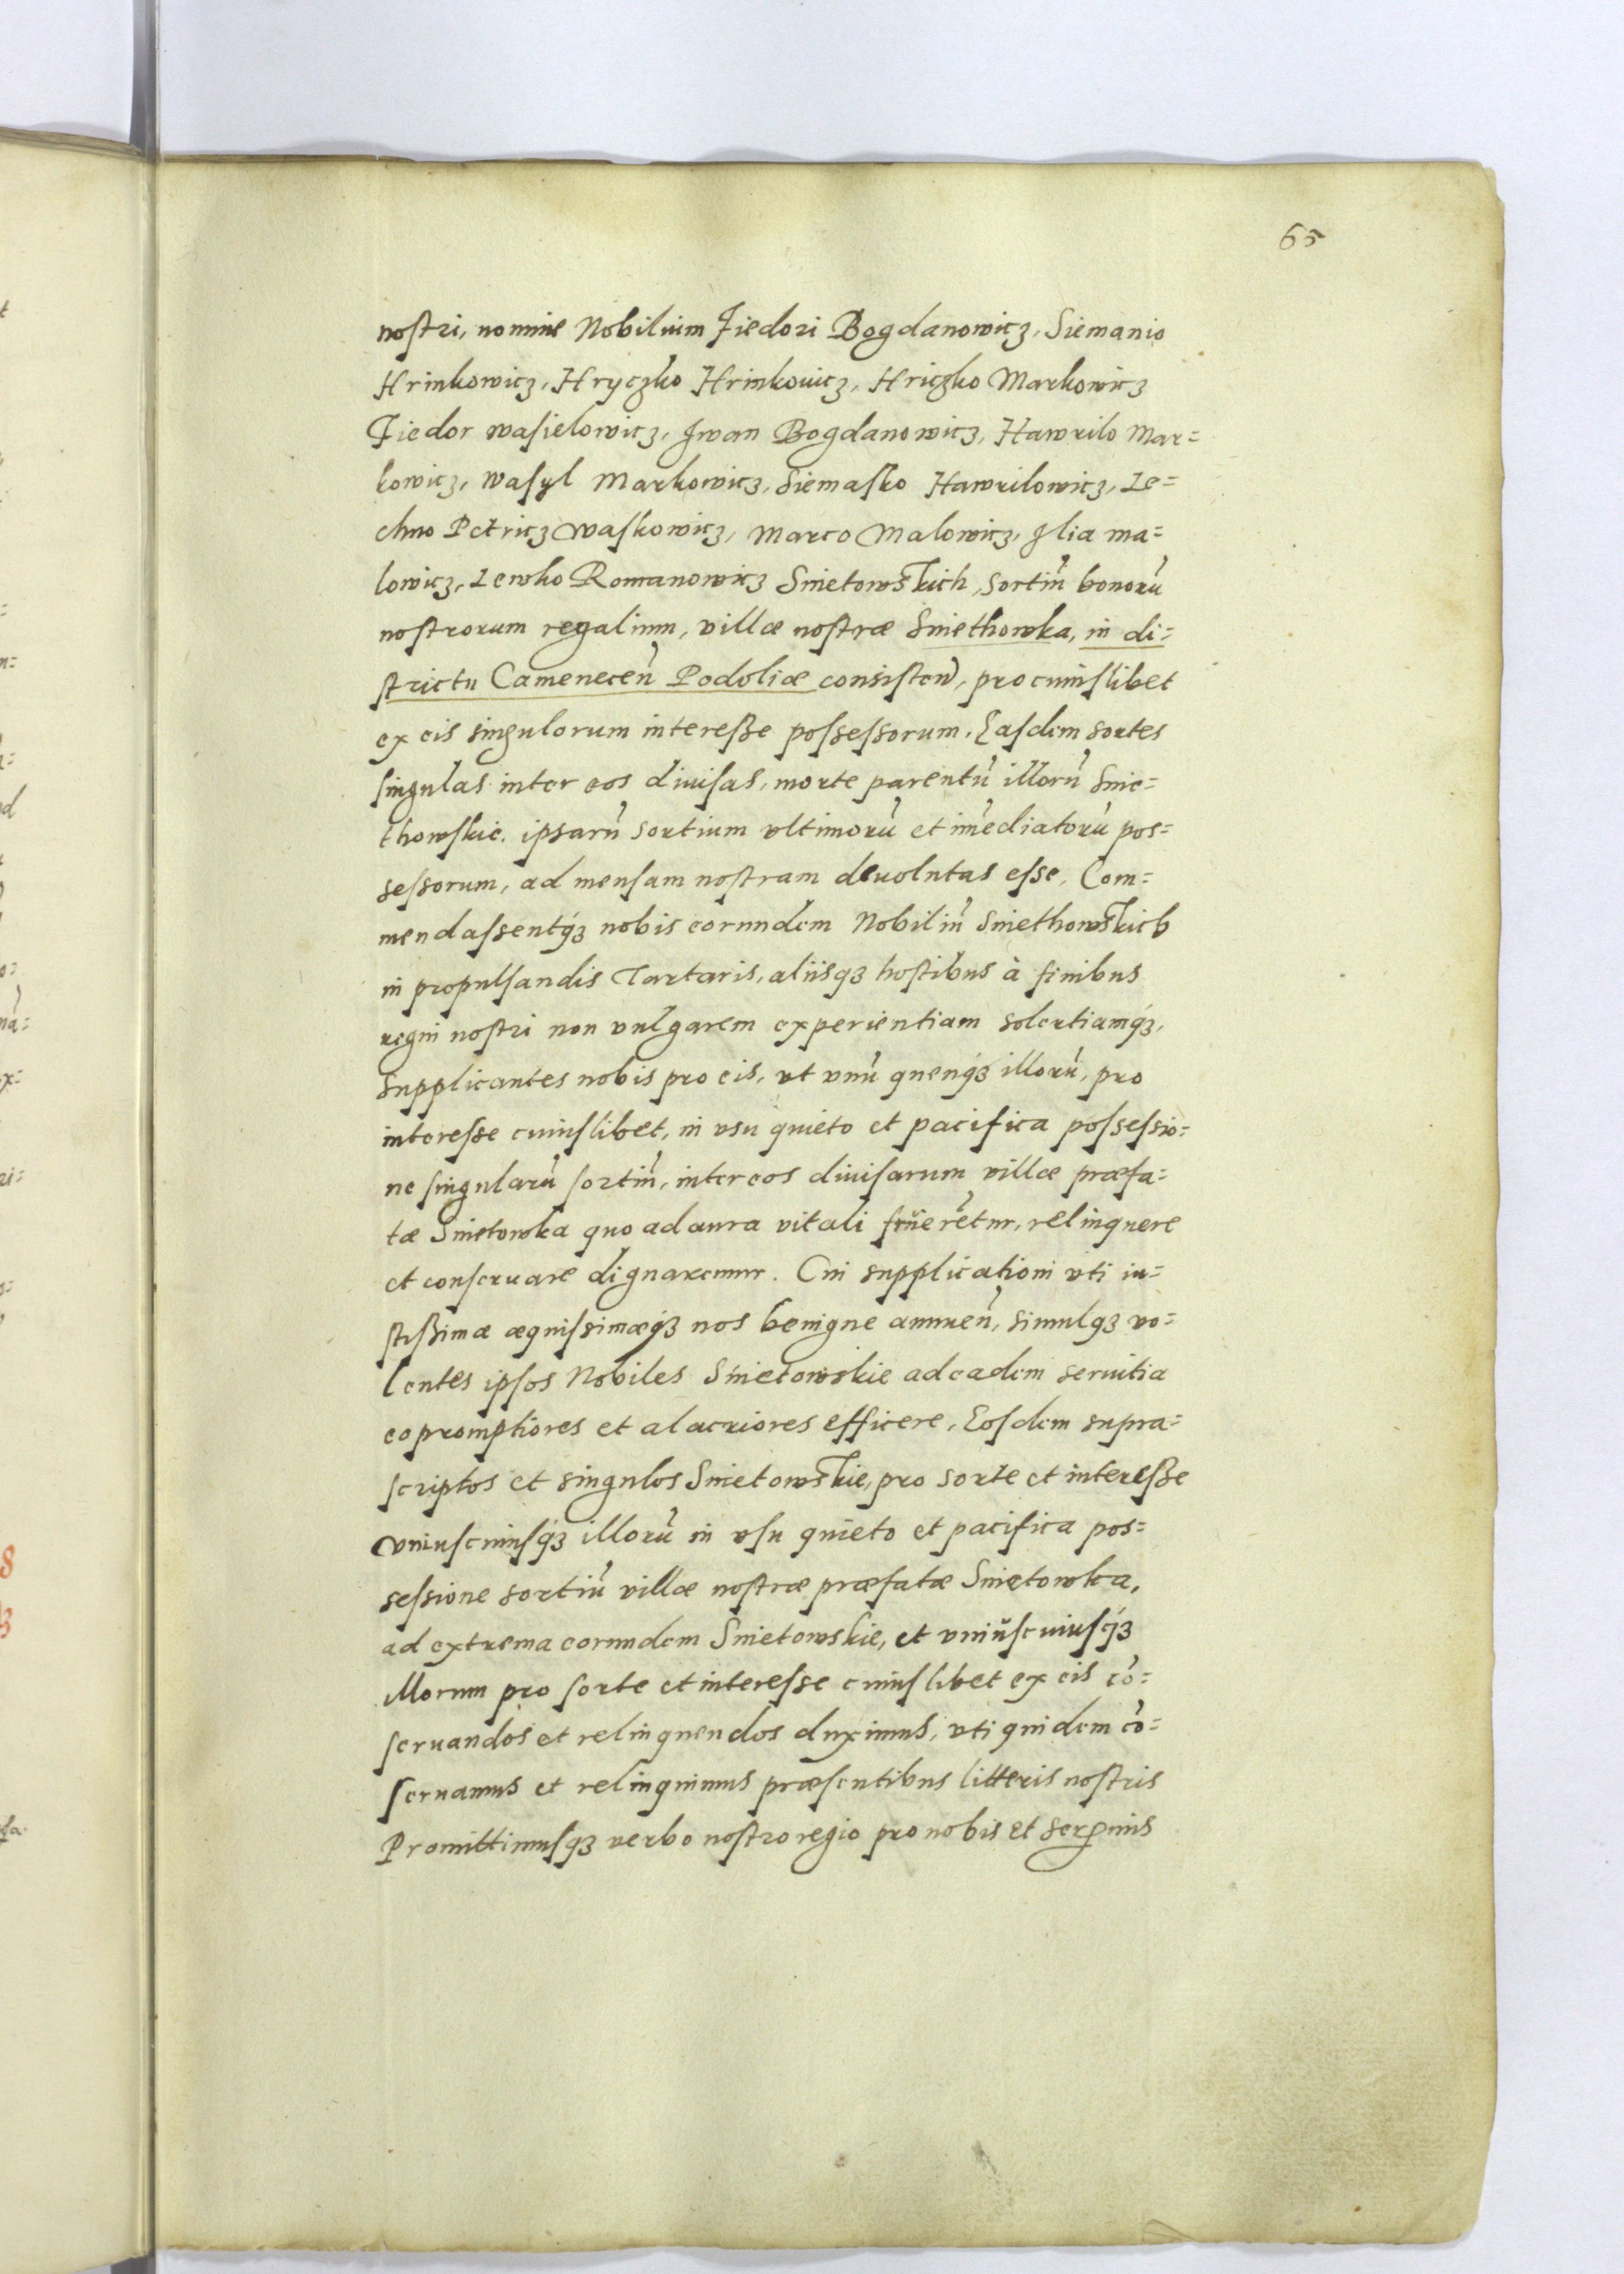 65
nostri, nomine Nobilium Fiedori Bogdanowicz, Siemanio
Hrinkowicz, Hryczko Hrinkouicz, Hriczko Markowicz
Fiedor wasielowicz, Jwan Bogdanowicz, Hawrilo Mar=
kowicz, wasyl Markowicz, Siemasko Hawrilowicz, Le=
chno Petricz Waskowicz, Marco Malowicz, Jlia ma=
lowicz, Lewko Romanowicz Snietowskich, sortiu᷑ bonoru᷑
nostrorum regalium, villæ nostræ Sniethowka, in di=
strictu Camenecen᷑ Podoliæ consisten᷑, pro cuiuslibet
ex eis singulorum interesse possessorum. Easdem sortes
singulas inter eos diuisas, morte parentu᷑ illoru᷑ Snie=
thowskie. ipsaru᷑ sortium vltimoru᷑ et im᷑ediatoru᷑ pos=
sessorum, ad mensam nostram deuolutas esse. Com=
mendassentq́ꝫ nobis eorundem Nobiliu᷑ Sniethowskich
in propulsandis Tartaris, aliisqꝫ hostibus à finibus
regni nostri non vulgarem experientiam solertiamq́ꝫ,
Supplicantes nobis pro eis, vt vnu᷑ quenq́ꝫ illoru᷑, pro
interesse cuiuslibet, in vsu quieto et pacifica possessio=
ne singularu᷑ sortiu᷑, inter eos diuisarum villæ præfa=
tæ Snietowka quo ad aura vitali frueret᷑ur, relinquere
et conseruare dignaremur. Cui supplicationi vti iu=
stissimæ æquissimæq́ꝫ nos benigne annuen᷑, simulqꝫ vo=
lentes ipsos Nobiles Snietowskie ad eadem seruitia
eo promptiores et alacriores efficere, Eosdem supra=
scriptos et singulos Snietowskie, pro sorte et interesse
vniuscuiusq́ꝫ illoru᷑ in vsu quieto et pacifica pos=
sessione sortiu᷑ villæ nostræ præfatæ Snietowka,
ad extrema eorundem Snietowskie, et vniuscuiusq́ꝫ
illorum pro sorte et interesse cuiuslibet ex eis co᷑=
seruandos et relinquendos duximus, vti quidem co᷑=
seruamus et relinquimus præsentibus litteris nostris
Promittimusqꝫ verbo nostro regio pro nobis et Serꝑmis